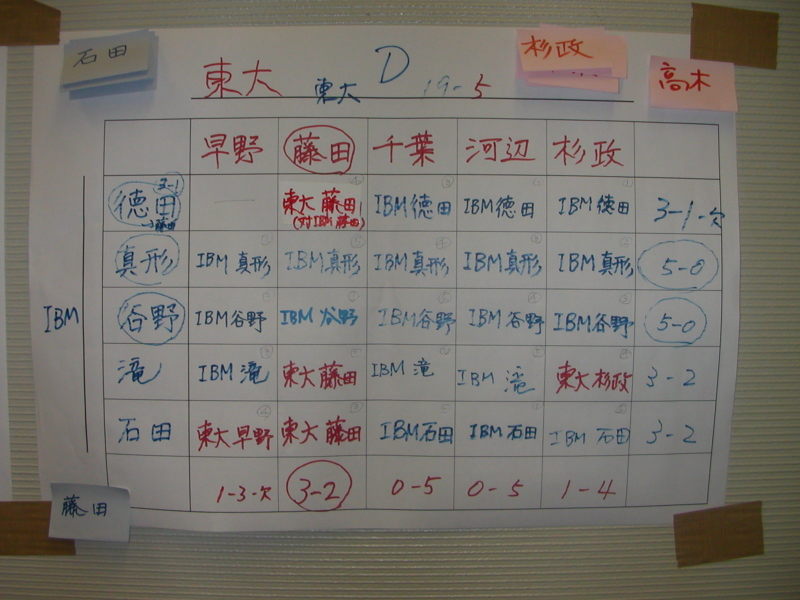 石田
杉政
高木
東大 東大 D 19-5
早野 藤田 千葉 河辺 杉政
徳田 3-1 →藤田 — 東大 藤田 (対IBM 藤田) IBM徳田 IBM徳田 IBM 徳田 3-1-欠
真形 IBM 真形 IBM真形 IBM真形 IBM真形 IBM 真形 5-0
IBM
谷野 IBM谷野 IBM 谷野 IBM谷野 IBM 谷野 IBM谷野 5-0
滝 IBM 滝 東大藤田 IBM 滝 IBM 滝 東大杉政 3-2
石田 東大早野 東大 藤田 IBM石田 IBM石田 IBM 石田 3-2
1-3-欠 3-2 0-5 0-5 1-4
藤田